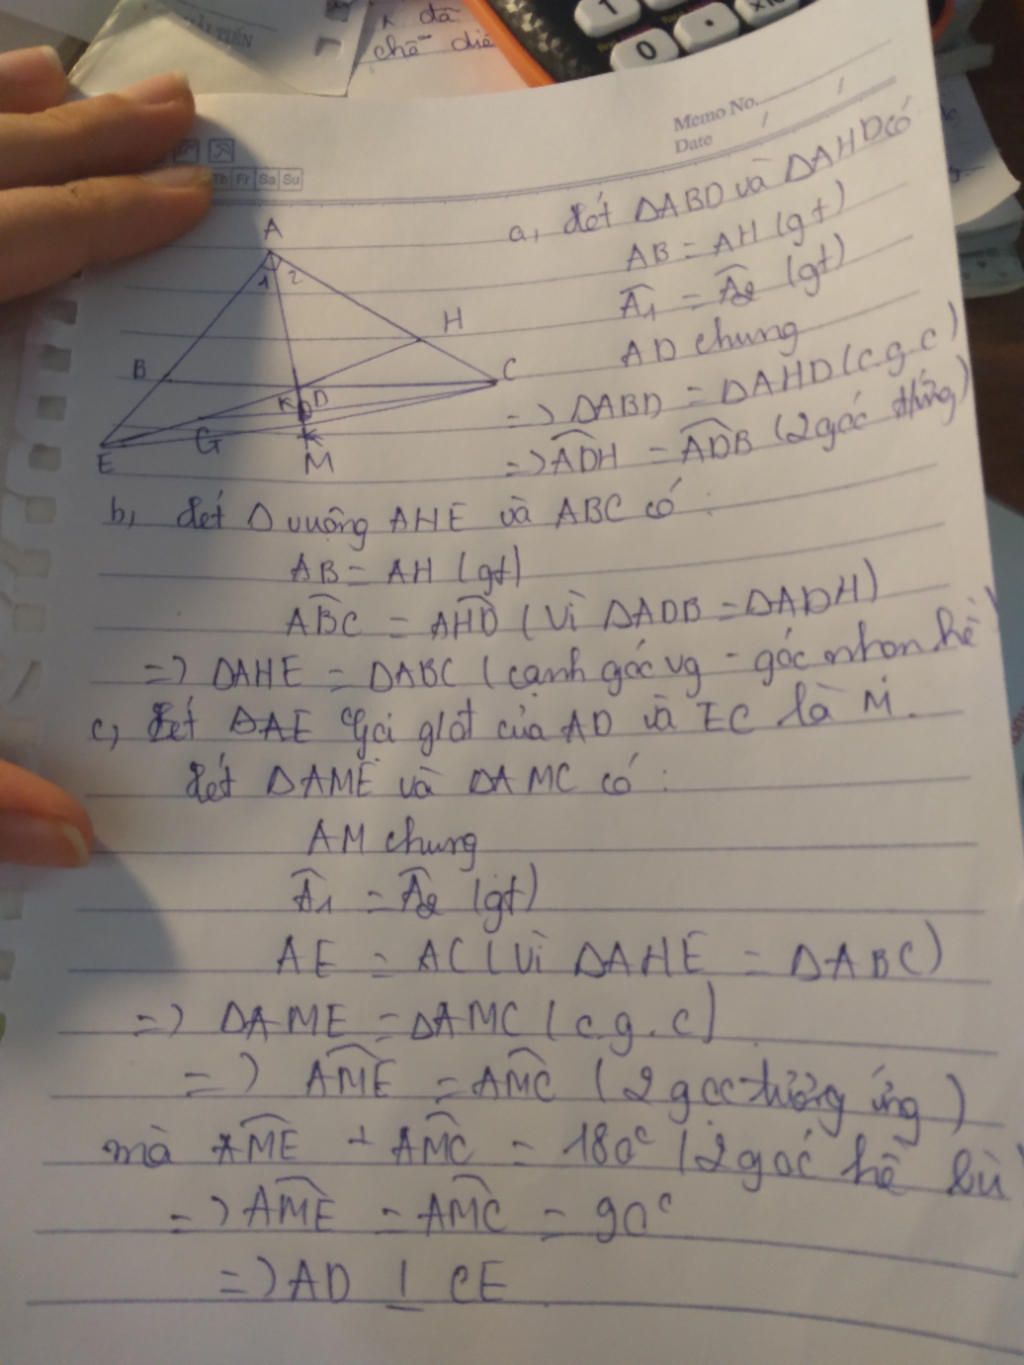 đã
chỗ
1
0
Memo No. /
Date /
Th Fr Sa Su
A
1 2
H
B
C
K D
G
E
M
a, Xét ΔABD và ΔAHD có
AB = AH (gt)
Â1 = Â2 (gt)
AD chung
=> ΔABD = ΔAHD (c.g.c)
=> ADH = ADB (2 góc
b, Xét Δ vuông AHE và ABC có :
AB = AH (gt)
ABC = AHD (vì ΔADB = ΔADH)
=> ΔAHE = ΔABC (cạnh góc vg - góc nhọn kề
c, Xét ΔAE Gọi g/đ của AD và EC là M.
Xét ΔAME và ΔAMC có :
AM chung
Â1 = Â2 (gt)
AE = AC (vì ΔAHE = ΔABC)
=> ΔAME = ΔAMC (c.g.c)
=> AME = AMC (2 góc tương ứng)
mà AME + AMC = 180° (2 góc kề bù
=> AME = AMC = 90°
=> AD ⊥ CE